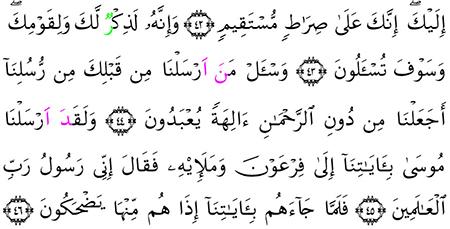 إِلَيۡكَۖ إِنَّكَ عَلَىٰ صِرَٰطٖ مُّسۡتَقِيمٖ ٤٢ وَإِنَّهُۥ لَذِكۡرٞ لَّكَ وَلِقَوۡمِكَۖ
وَسَوۡفَ تُسۡـَٔلُونَ ٤٣ وَسۡـَٔلۡ مَنَ ا رۡسَلۡنَا مِن قَبۡلِكَ مِن رُّسُلِنَا
أَجَعَلۡنَا مِن دُونِ ٱلرَّحۡمَٰنِ ءَالِهَةٗ يُعۡبَدُونَ ٤٤ وَلَقَدَ ا رۡسَلۡنَا
مُوسَىٰ بِـَٔايَٰتِنَآ إِلَىٰ فِرۡعَوۡنَ وَمَلَإِيْهِۦ فَقَالَ إِنِّي رَسُولُ رَبِّ
ٱلۡعَٰلَمِينَ ٤٥ فَلَمَّا جَآءَهُم بِـَٔايَٰتِنَآ إِذَا هُم مِّنۡهَا يَضۡحَكُونَ ٤٦